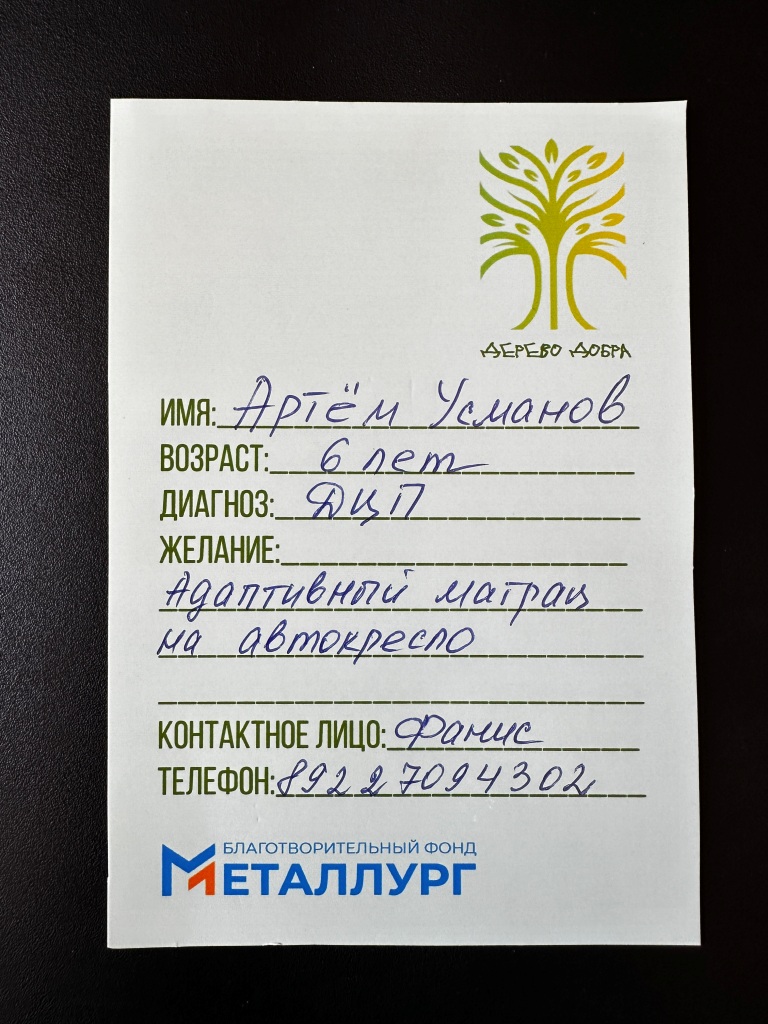 ДЕРЕВО ДОБРА
ИМЯ: Артём Усманов
ВОЗРАСТ: 6 лет
ДИАГНОЗ: ДЦП
ЖЕЛАНИЕ:
Адаптивный матрац
на автокресло
КОНТАКТНОЕ ЛИЦО: Фанис
ТЕЛЕФОН: 89227094302
БЛАГОТВОРИТЕЛЬНЫЙ ФОНД
МЕТАЛЛУРГ